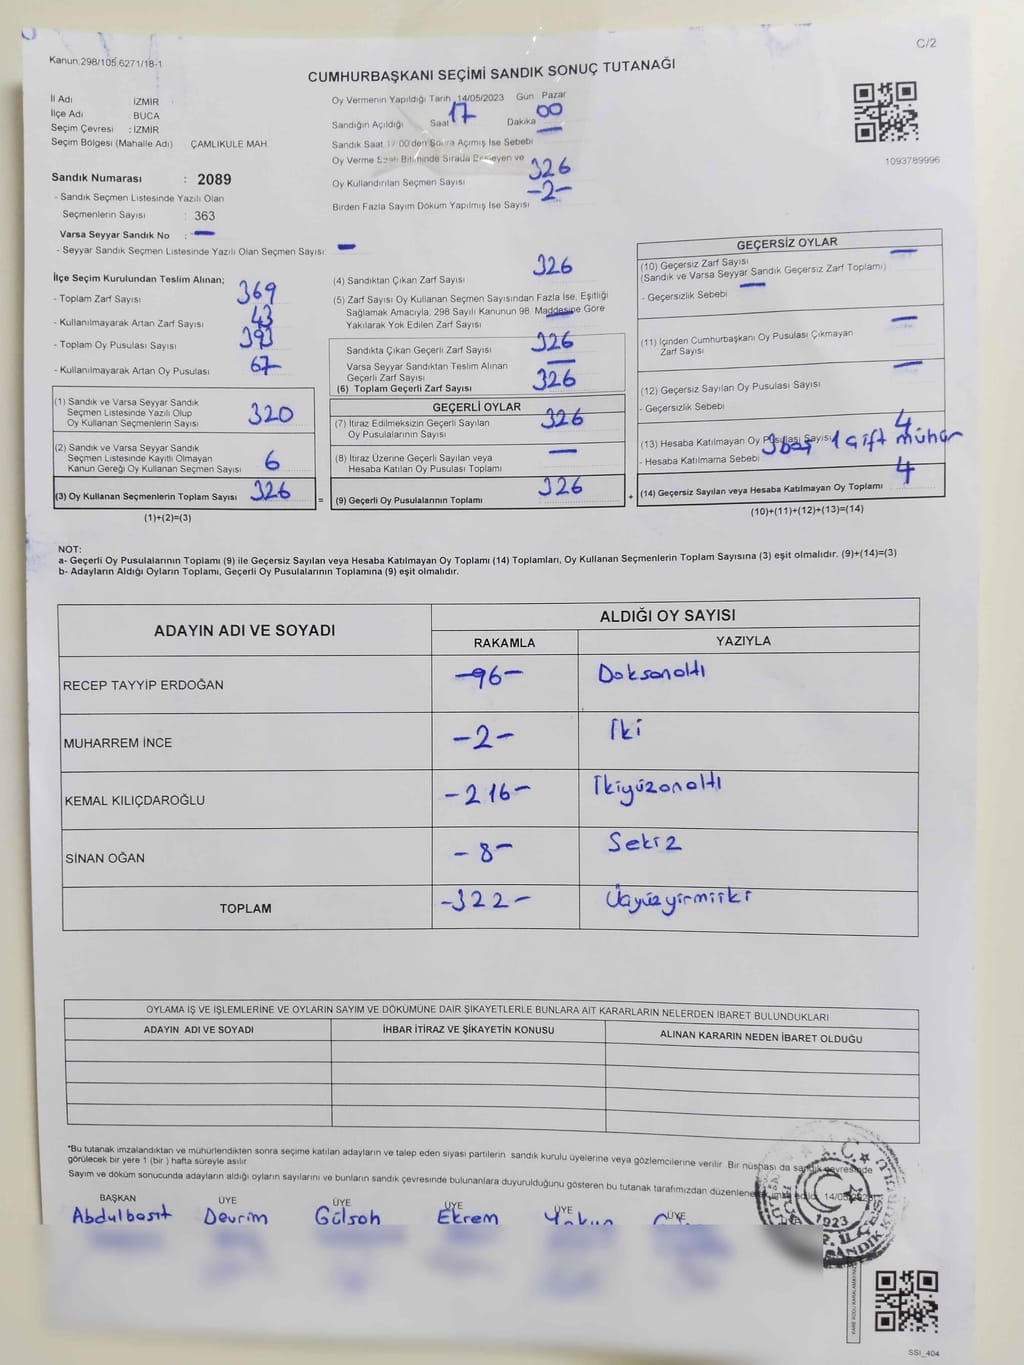 C/2
Kanun.298/105.6271/18-1
CUMHURBAŞKANI SEÇİMİ SANDIK SONUÇ TUTANAĞI
İl Adı İZMİR
İlçe Adı BUCA
Seçim Çevresi : İZMİR
Seçim Bölgesi (Mahalle Adı) ÇAMLIKULE MAH
Sandık Numarası : 2089
- Sandık Seçmen Listesinde Yazılı Olan
Seçmenlerin Sayısı : 363
Varsa Seyyar Sandık No : —
- Seyyar Sandık Seçmen Listesinde Yazılı Olan Seçmen Sayısı: —
Oy Vermenin Yapıldığı Tarih 14/05/2023 Gün Pazar
Sandığın Açıldığı Saat 17 Dakika 00
Sandık Saat 17 00'den Sonra Açımış İse Sebebi —
Oy Verme Bitiminde Sırada Bekleyen ve
Oy Kullandırılan Seçmen Sayısı 326
Birden Fazla Sayım Döküm Yapılmış İse Sayısı -2-
1093789996
İlçe Seçim Kurulundan Teslim Alınan;
- Toplam Zarf Sayısı 369
- Kullanılmayarak Artan Zarf Sayısı 43
- Toplam Oy Pusulası Sayısı 393
- Kullanılmayarak Artan Oy Pusulası 67
(1) Sandık ve Varsa Seyyar Sandık
Seçmen Listesinde Yazılı Olup
Oy Kullanan Seçmenlerin Sayısı 320
(2) Sandık ve Varsa Seyyar Sandık
Seçmen Listesinde Kayıtlı Olmayan
Kanun Gereği Oy Kullanan Seçmen Sayısı 6
(3) Oy Kullanan Seçmenlerin Toplam Sayısı 326
(1)+(2)=(3)
=
(4) Sandıktan Çıkan Zarf Sayısı 326
(5) Zarf Sayısı Oy Kullanan Seçmen Sayısından Fazla İse, Eşitliği
Sağlamak Amacıyla, 298 Sayılı Kanunun 98. Maddesine Göre
Yakılarak Yok Edilen Zarf Sayısı —
Sandıkta Çıkan Geçerli Zarf Sayısı 326
Varsa Seyyar Sandıktan Teslim Alınan
Geçerli Zarf Sayısı —
(6) Toplam Geçerli Zarf Sayısı 326
GEÇERLİ OYLAR
(7) İtiraz Edilmeksizin Geçerli Sayılan
Oy Pusulalarının Sayısı 326
(8) İtiraz Üzerine Geçerli Sayılan veya
Hesaba Katılan Oy Pusulası Toplamı —
(9) Geçerli Oy Pusulalarının Toplamı 326
+
GEÇERSİZ OYLAR
(10) Geçersiz Zarf Sayısı —
(Sandık ve Varsa Seyyar Sandık Geçersiz Zarf Toplamı)
- Geçersizlik Sebebi —
(11) İçinden Cumhurbaşkanı Oy Pusulası Çıkmayan
Zarf Sayısı —
(12) Geçersiz Sayılan Oy Pusulası Sayısı —
- Geçersizlik Sebebi
(13) Hesaba Katılmayan Oy Pusulası Sayısı 4
- Hesaba Katılmama Sebebi 3 boş 1 çift mühür
(14) Geçersiz Sayılan veya Hesaba Katılmayan Oy Toplamı 4
(10)+(11)+(12)+(13)=(14)
NOT:
a- Geçerli Oy Pusulalarının Toplamı (9) ile Geçersiz Sayılan veya Hesaba Katılmayan Oy Toplamı (14) Toplamları, Oy Kullanan Seçmenlerin Toplam Sayısına (3) eşit olmalıdır. (9)+(14)=(3)
b- Adayların Aldığı Oyların Toplamı, Geçerli Oy Pusulalarının Toplamına (9) eşit olmalıdır.
ADAYIN ADI VE SOYADI ALDIĞI OY SAYISI
RAKAMLA YAZIYLA
RECEP TAYYİP ERDOĞAN -96- Doksanaltı
MUHARREM İNCE -2- İki
KEMAL KILIÇDAROĞLU -216- İkiyüzonaltı
SİNAN OĞAN -8- Sekiz
TOPLAM -322- Üçyüzyirmiiki
OYLAMA İŞ VE İŞLEMLERİNE VE OYLARIN SAYIM VE DÖKÜMÜNE DAİR ŞİKAYETLERLE BUNLARA AİT KARARLARIN NELERDEN İBARET BULUNDUKLARI
ADAYIN ADI VE SOYADI İHBAR İTİRAZ VE ŞİKAYETİN KONUSU ALINAN KARARIN NEDEN İBARET OLDUĞU
*Bu tutanak imzalandıktan ve mühürlendikten sonra seçime katılan adayların ve talep eden siyasi partilerin sandık kurulu üyelerine veya gözlemcilerine verilir. Bir nüshası da sandık çevresinde
görülecek bir yere 1 (bir) hafta süreyle asılır
Sayım ve döküm sonucunda adayların aldığı oyların sayılarını ve bunların sandık çevresinde bulunanlara duyurulduğunu gösteren bu tutanak tarafımızdan düzenlenerek 14/05/2023
BAŞKAN ÜYE ÜYE ÜYE ÜYE ÜYE
Abdulbasit Devrim Gülsah Ekrem
1923
SSI_404